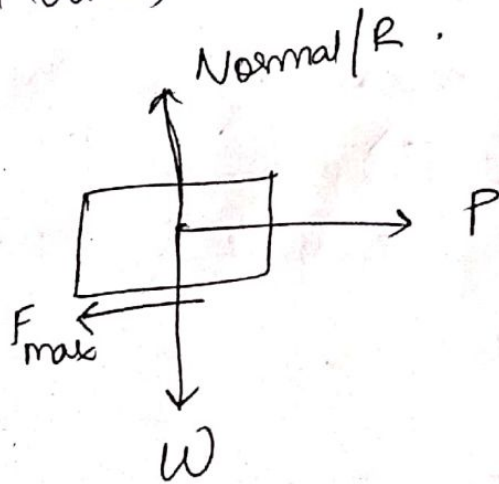 Normal/R.
P
Fmax
W